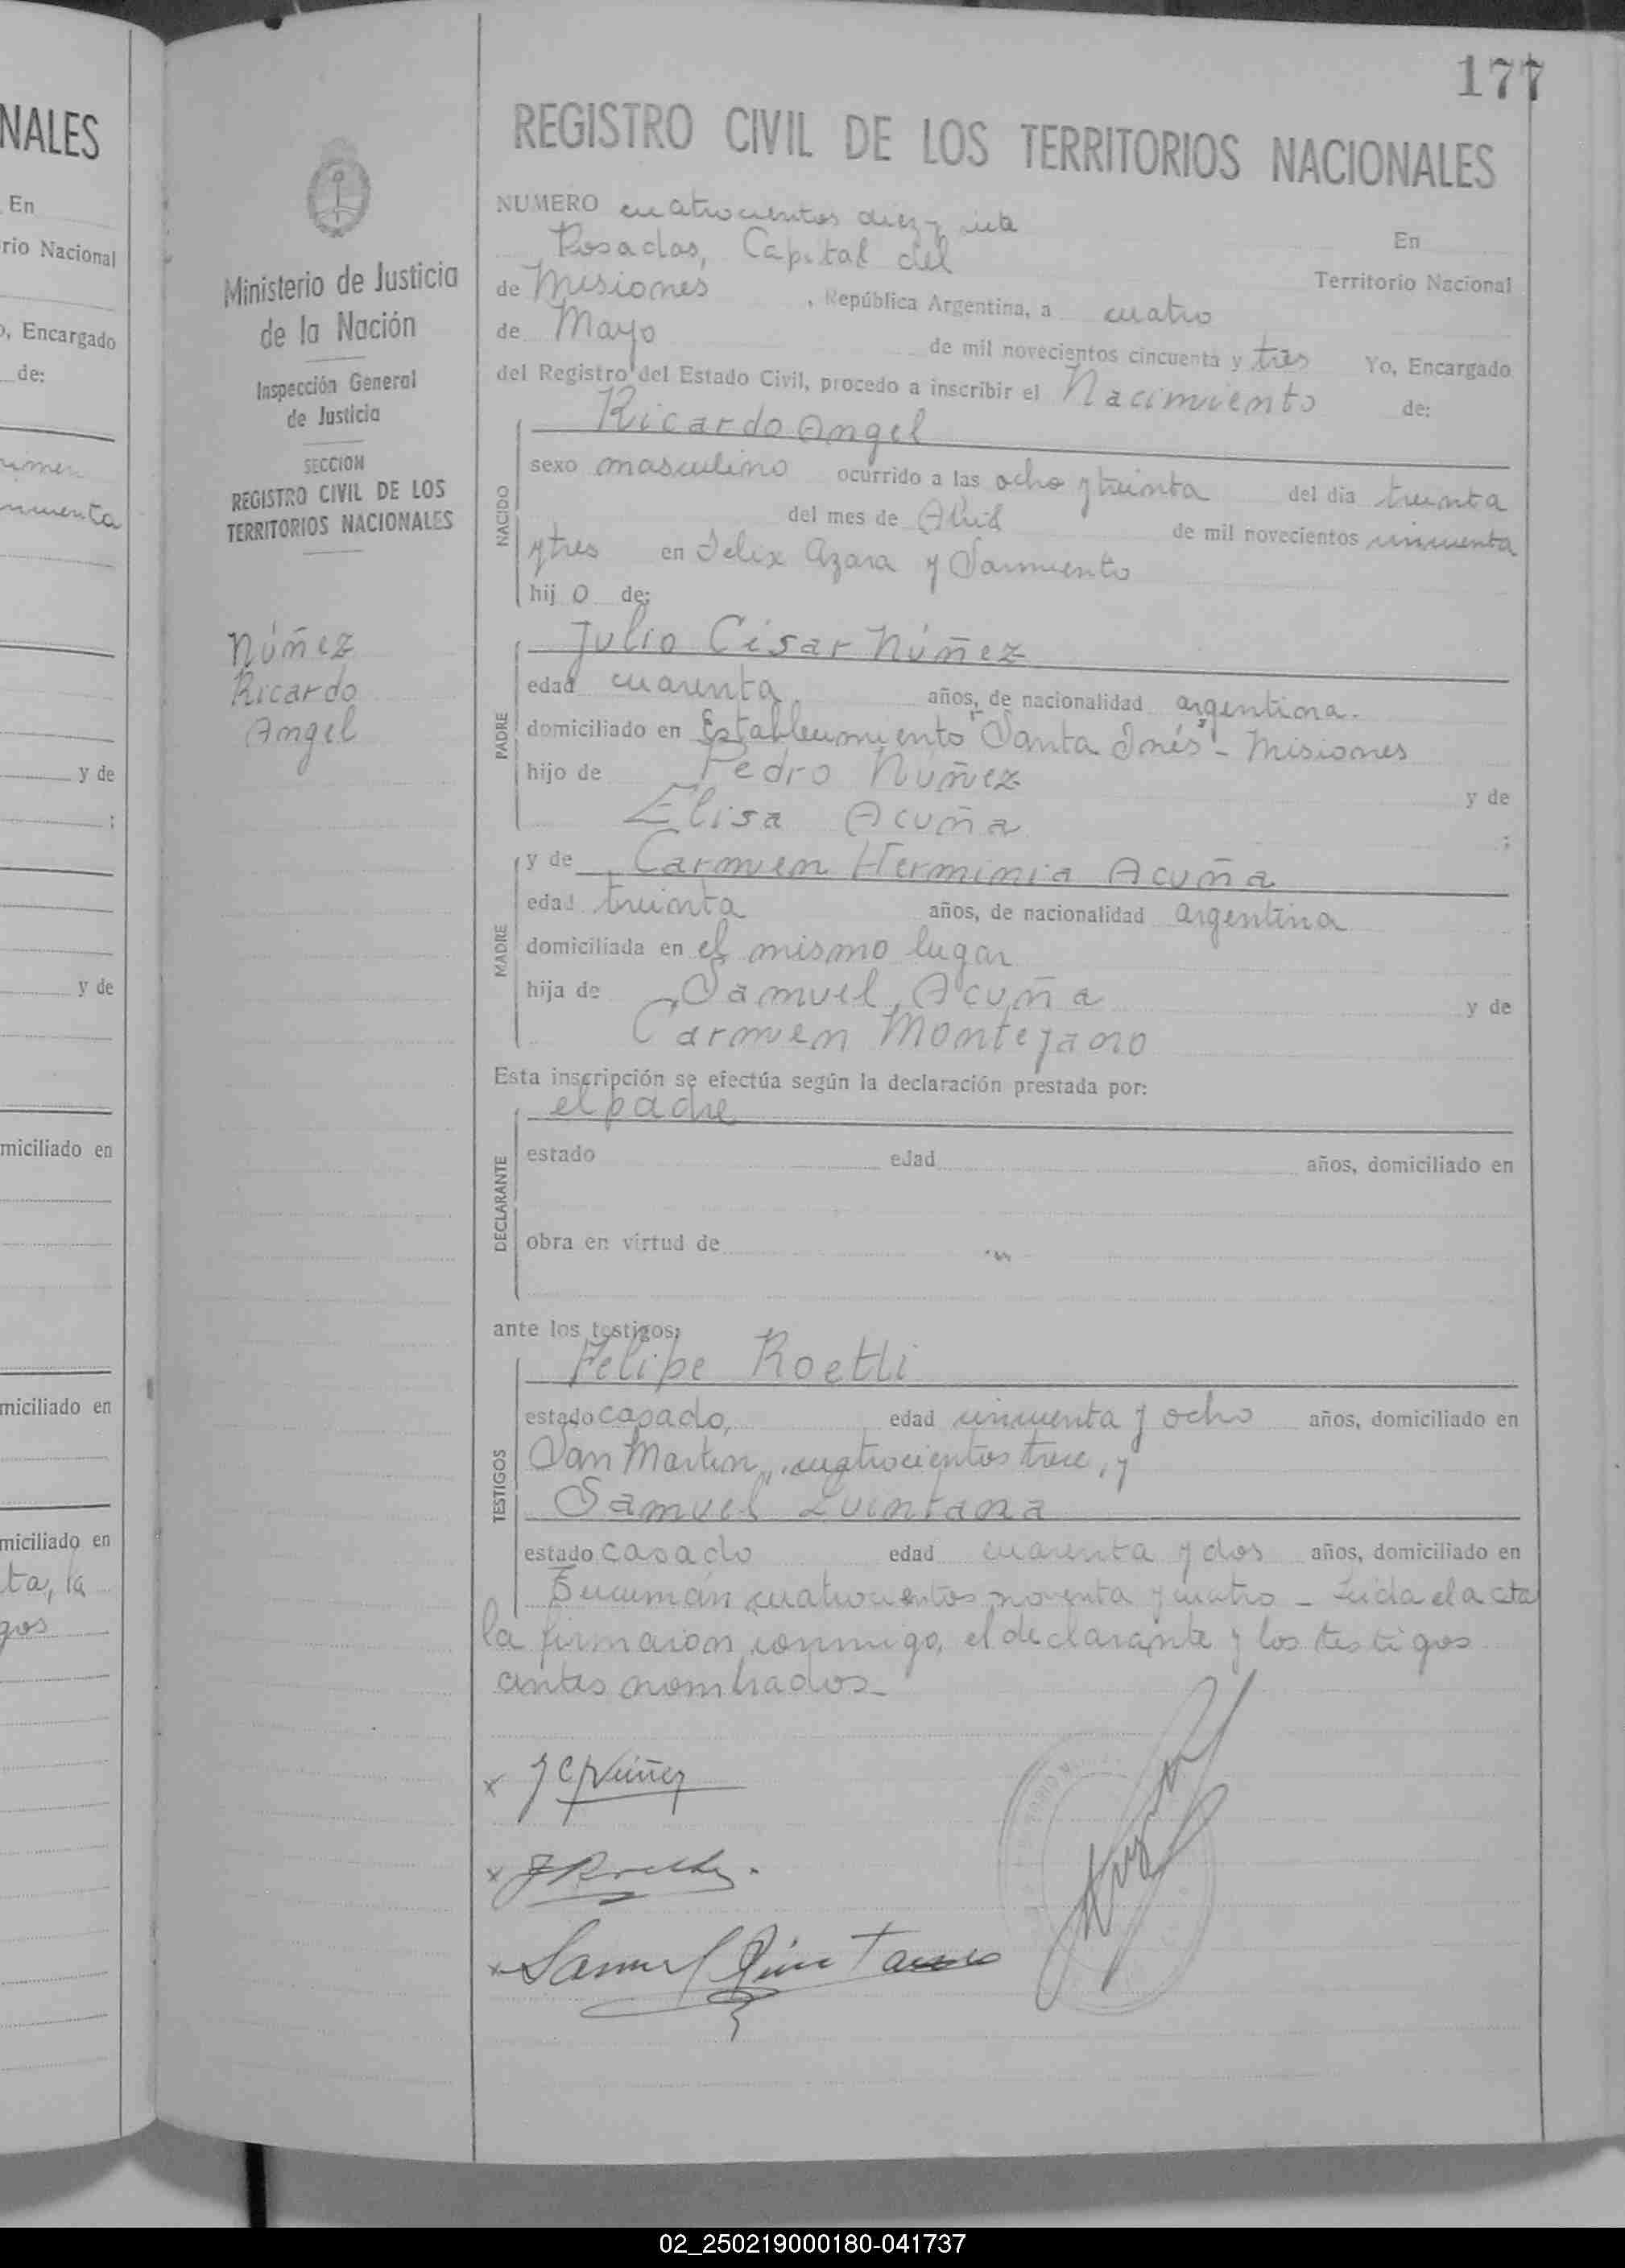 177
NALES
En
rio Nacional
o, Encargado
de:
y de
;
y de
miciliado en
miciliado en
miciliado en
ta, la
gos
Ministerio de Justicia
de la Nación
Inspección General
de Justicia
SECCION
REGISTRO CIVIL DE LOS
TERRITORIOS NACIONALES
Núñez
Ricardo
Angel
REGISTRO CIVIL DE LOS TERRITORIOS NACIONALES
NUMERO cuatrocientos diez y
Posadas, Capital del En
de Misiones, República Argentina, a cuatro Territorio Nacional
de Mayo de mil novecientos cincuenta y tres Yo, Encargado
del Registro del Estado Civil, procedo a inscribir el Nacimiento de:
Ricardo Angel
NACIDO
sexo masculino ocurrido a las ocho y treinta del día treinta
del mes de Abril de mil novecientos cincuenta
y tres en Felix Azara y Sarmiento
hij o de:
Julio César Núñez
PADRE
edad cuarenta años, de nacionalidad argentina.
domiciliado en Establecimiento "Santa Inés" - Misiones
hijo de Pedro Núñez y de
Elisa Acuña ;
y de Carmen Herminia Acuña
MADRE
edad treinta años, de nacionalidad argentina
domiciliada en el mismo lugar
hija de Samuel Acuña y de
Carmen Montejano
Esta inscripción se efectúa según la declaración prestada por:
el padre
DECLARANTE
estado edad años, domiciliado en
obra en virtud de
ante los testigos:
Felipe Roetti
TESTIGOS
estado casado, edad cincuenta y ocho años, domiciliado en
San Martin, cuatrocientos trece, y
Samuel Quintana
estado casado edad cuarenta y dos años, domiciliado en
Tucumán cuatrocientos noventa y cuatro - Leida el acta
la firmaron conmigo, el declarante y los testigos
antes nombrados-
x J C Núñez
x F Roetti.
x Samuel Quintana
02_250219000180-041737